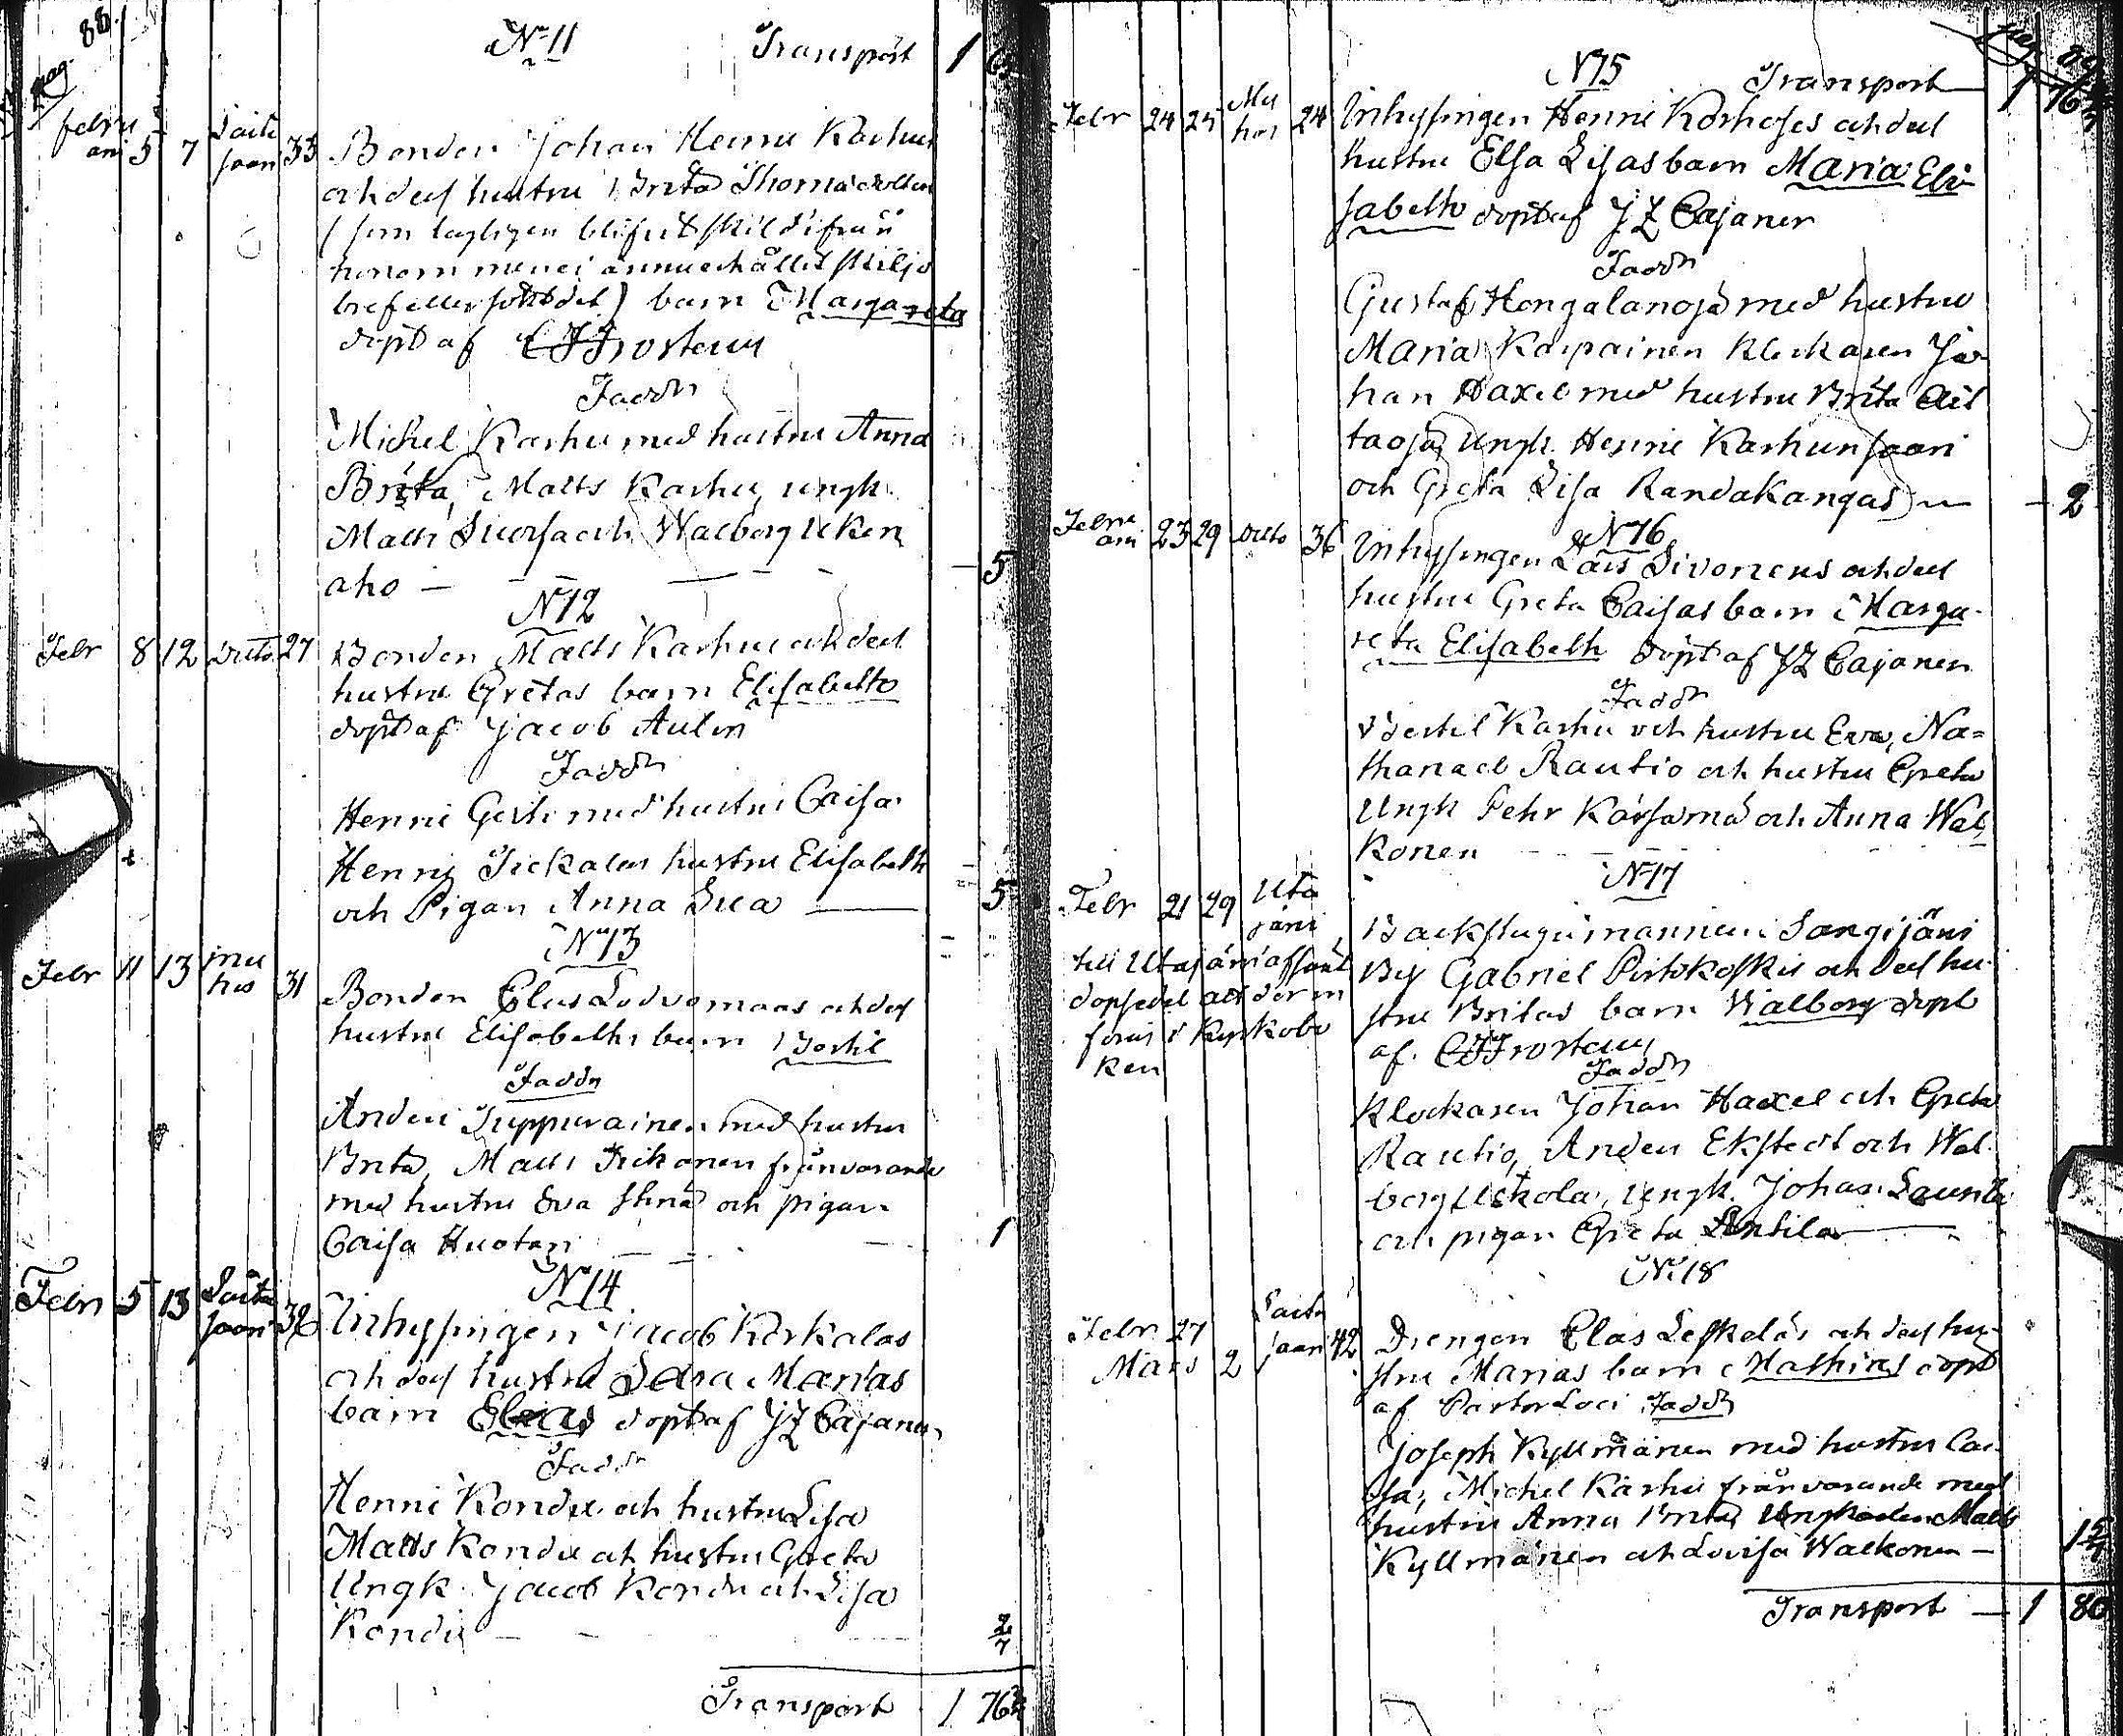 pag. 88.
N 11 Transport 1
Febru
arii 5 7 Saita
saari 33 Bonden Johan Henric Karhus
och des hustru Brita Thomædotters
(som lagligen blifvit skild ifrån
honom men ej ännu erhållit skiljo
bref eller sökt det) barn Margareta
döpt af C F Frosterus
Faddr
Michel Karhu med hustru Anna
Brita, Matts Karhu, ungk.
Matts Suorsa och Walborg
aho — 5
N 12
Febr 8 12 Dito 27 Bonden Matts Karhus och des
hustru Gretas barn Elisabeth
döpt af Jacob Aulin
Faddr
Henric med hustru Caisa
Henric hustru Elisabeth
och Pigan Anna — 5
N 13
Febr 11 13 Mu
hos 31 Bonden Elias och des
hustru Elisabeths barn Bertil
Faddr
Anders Tuppurainen med hustru
Brita, Matts frånvarande
med hustru Eva Stina och pigan
Caisa Huotari — 1
N 14
Febr 5 13 Saita
saari 38 Inhysingen Jacob Korkalas
och des hustru Sara Marias
barn Elias döpt af J Z Cajanus
Faddr
Henric Kondu och hustru Lisa
Matts Kondu och hustru Greta
Ungk. Jacob Kondu och Lisa
Kondu —
Transport 1 76
pag 89
N 15 Transport 1 76
Febr 24 25 Mu
hos 24 Inhysingen Henric Korhoses och des
hustru Elsa Lisas barn Maria Eli
sabeth döpt af J Z Cajanus
Faddr
Gustaf Hongalanoja med hustru
Maria Karpainen Klockaren Jo
han Haxel med hustru Brita
taoja, Ungk. Henric Karhunsaari
och Greta Lisa Randakangas — 2
N 16
Febru
arii 23 29 Dito 36 Inhysingen Lars Sivonens och des
hustru Greta Caisas barn Marga
reta Elisabeth döpt af J Z Cajanus
Faddr
Bertil Karhu och hustru Eva, Na=
thanael Rautio och hustru Greta
Ungk Pehr Kärsämä och Anna Wal
konen
N 17
Febr 21 29 Uta
järvi Backstugumannen i Sangijärvi
till Utajärvi afsänt
dopsedel att der in
föras i Kyrkobo
ken
By Gabriel Pirtokoskis och des hu
stru Britas barn Walborg döpt
af C F Frosterus
Faddr
Klockaren Johan Haxel och Greta
Rautio, Anders Ekstedt och Wal
borg Uckola, Ungk. Johan
och pigan Greta Antila —
N 18
Febr 27
Mars 2 Saita
saari 42 Drengen Elias Leskeläs och des hu
stru Marias barn Mathias döpt
af Pastor Loci Faddr
Joseph Kyllmänen med hustru Cai
sa, Michel Karhu frånvarande med
hustru Anna Brita Ungkarlen Matts
Kyllmänen och Lovisa Walkonen —
Transport — 1 80